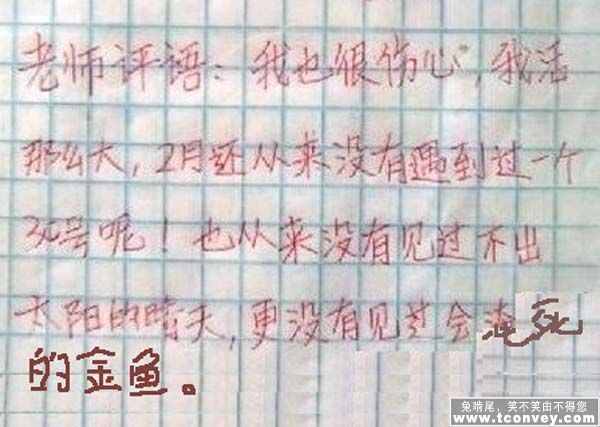 老师评语：我也很伤心，我活
那么大，2月还从来没有遇到过一个
30号呢！也从来没有见过不出
太阳的晴天，更没有见过会淹死
的金鱼。
兔啃尾，笑不笑由不得您
www.tconvey.com